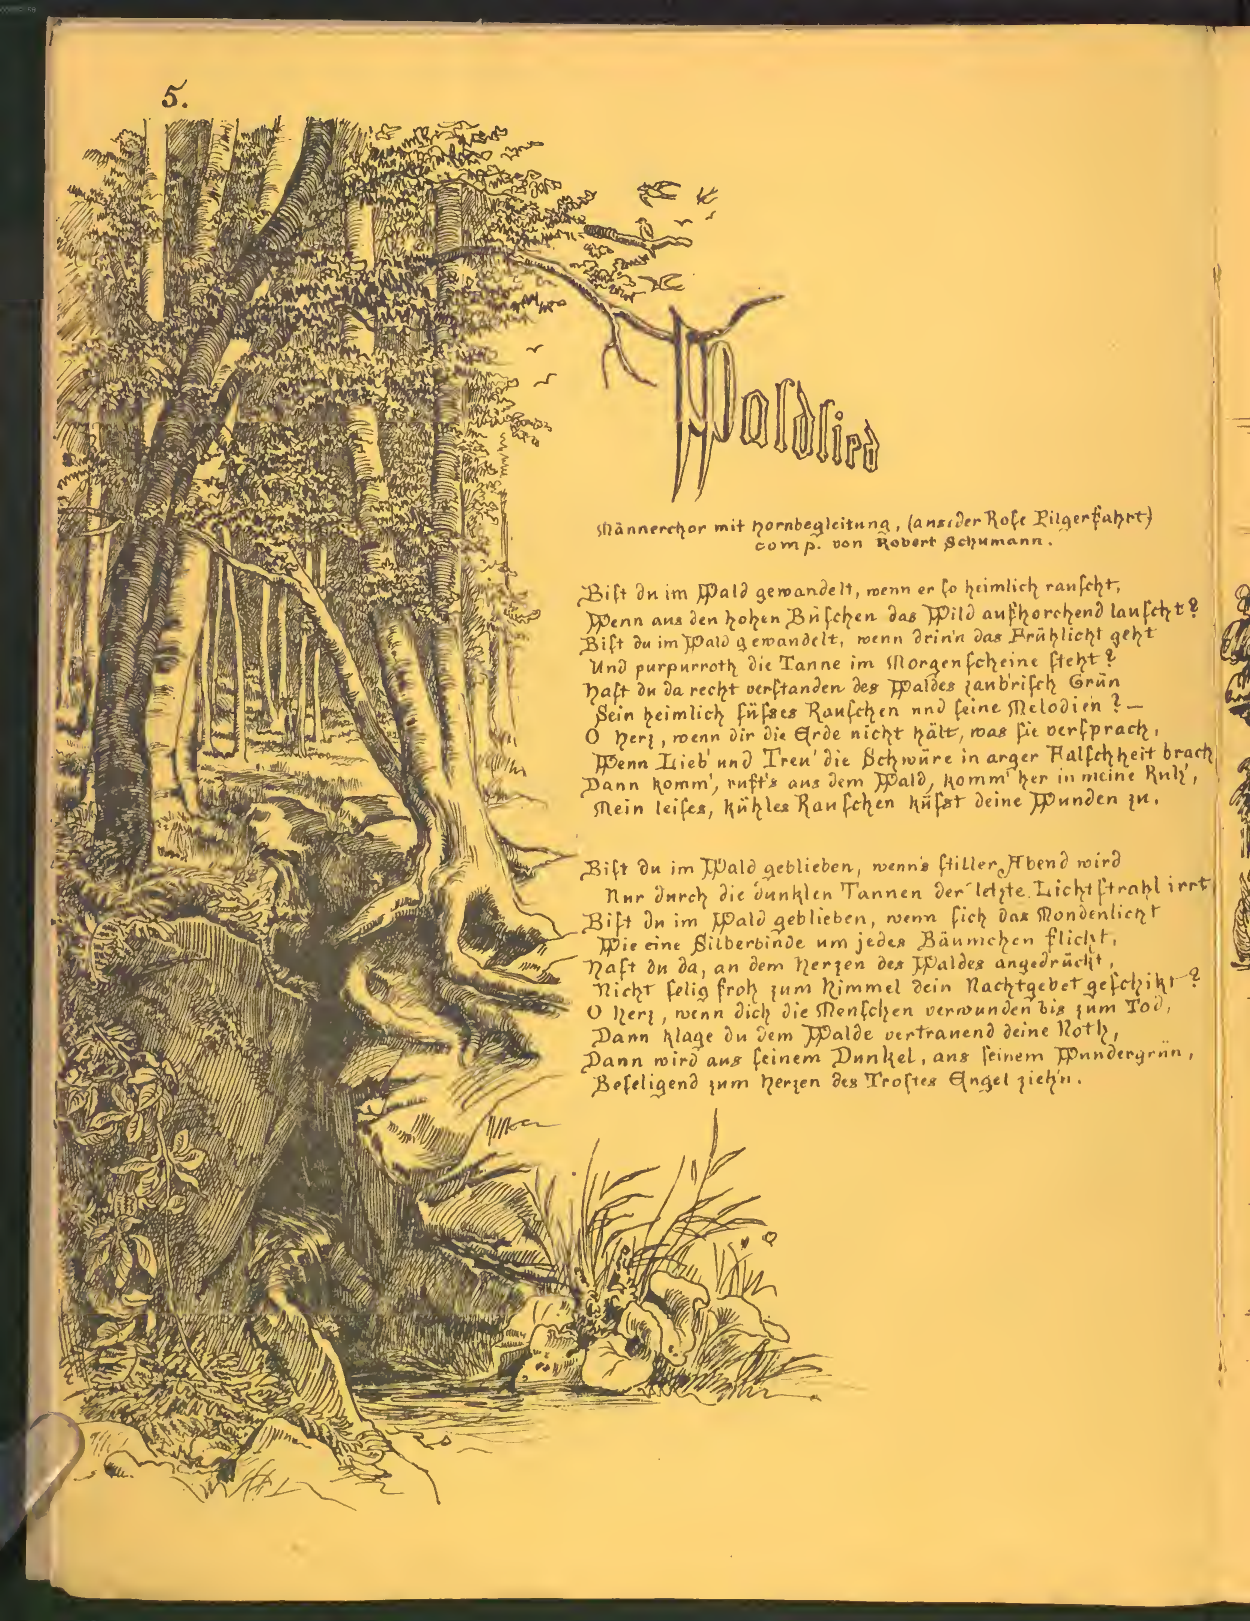 5.
Waldlied
Männerchor mit Hornbegleitung, (aus: der Rose Pilgerfahrt)
comp. von Robert Schumann.
Bist du im Wald gewandelt, wenn er so heimlich rauscht,
Wenn aus den hohen Büschen das Wild aufhorchend lauscht?
Bist du im Wald gewandelt, wenn drin'n das Frühlicht geht
Und purpurroth die Tanne im Morgenscheine steht?
Hast du da recht verstanden des Waldes zaub'risch Grün
Sein heimlich süßes Rauschen und seine Melodien? —
O Herz, wenn dir die Erde nicht hält, was sie versprach,
Wenn Lieb' und Treu' die Schwüre in arger Falschheit brach
Dann komm', ruft's aus dem Wald, komm' her in meine Ruh',
Mein leises, kühles Rauschen küßt deine Wunden zu.
Bist du im Wald geblieben, wenn's stiller Abend wird
Nur durch die dunklen Tannen der letzte Lichtstrahl irrt
Bist du im Wald geblieben, wenn sich das Mondenlicht
Wie eine Silberbinde um jedes Bäumchen flicht,
Hast du da, an dem Herzen des Waldes angedrückt,
Nicht selig froh zum Himmel dein Nachtgebet geschikt?
O Herz, wenn dich die Menschen verwunden bis zum Tod,
Dann klage du dem Walde vertrauend deine Noth,
Dann wird aus seinem Dunkel, aus seinem Wundergrün,
Beseligend zum Herzen des Trostes Engel zieh'n.